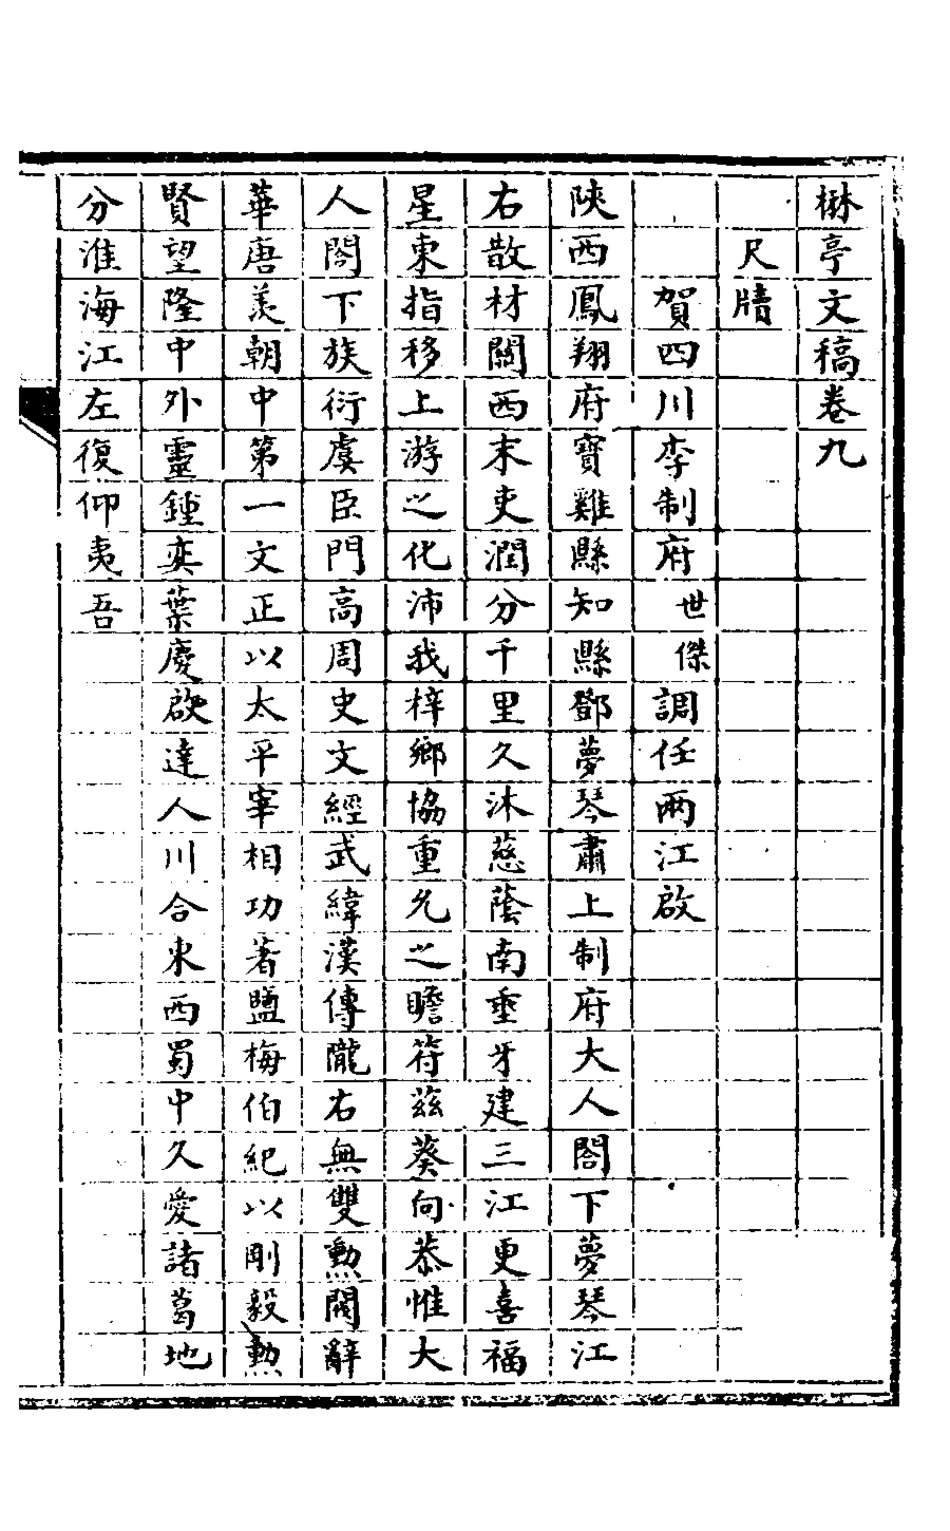 楙亭文稿卷九
尺牘
賀四川李制府世傑調任兩江啟
陝西鳳翔府寶雞縣知縣鄧夢琴肅上制府大人閤下夢琴江
右散材關西末吏潤分千里久沐慈蔭南垂牙建三江更喜福
星東指移上游之化沛我梓鄉協重允之瞻符茲葵向恭惟大
人閤下族衍虞臣門高周史文經武緯漢傳隴右無雙勲閥辭
華唐羙朝中第一文正以太平宰相功著鹽梅伯紀以剛毅勲
賢望隆中外靈鍾奕葉慶啟達人川合東西蜀中久愛諸葛地
分淮海江左復仰夷吾